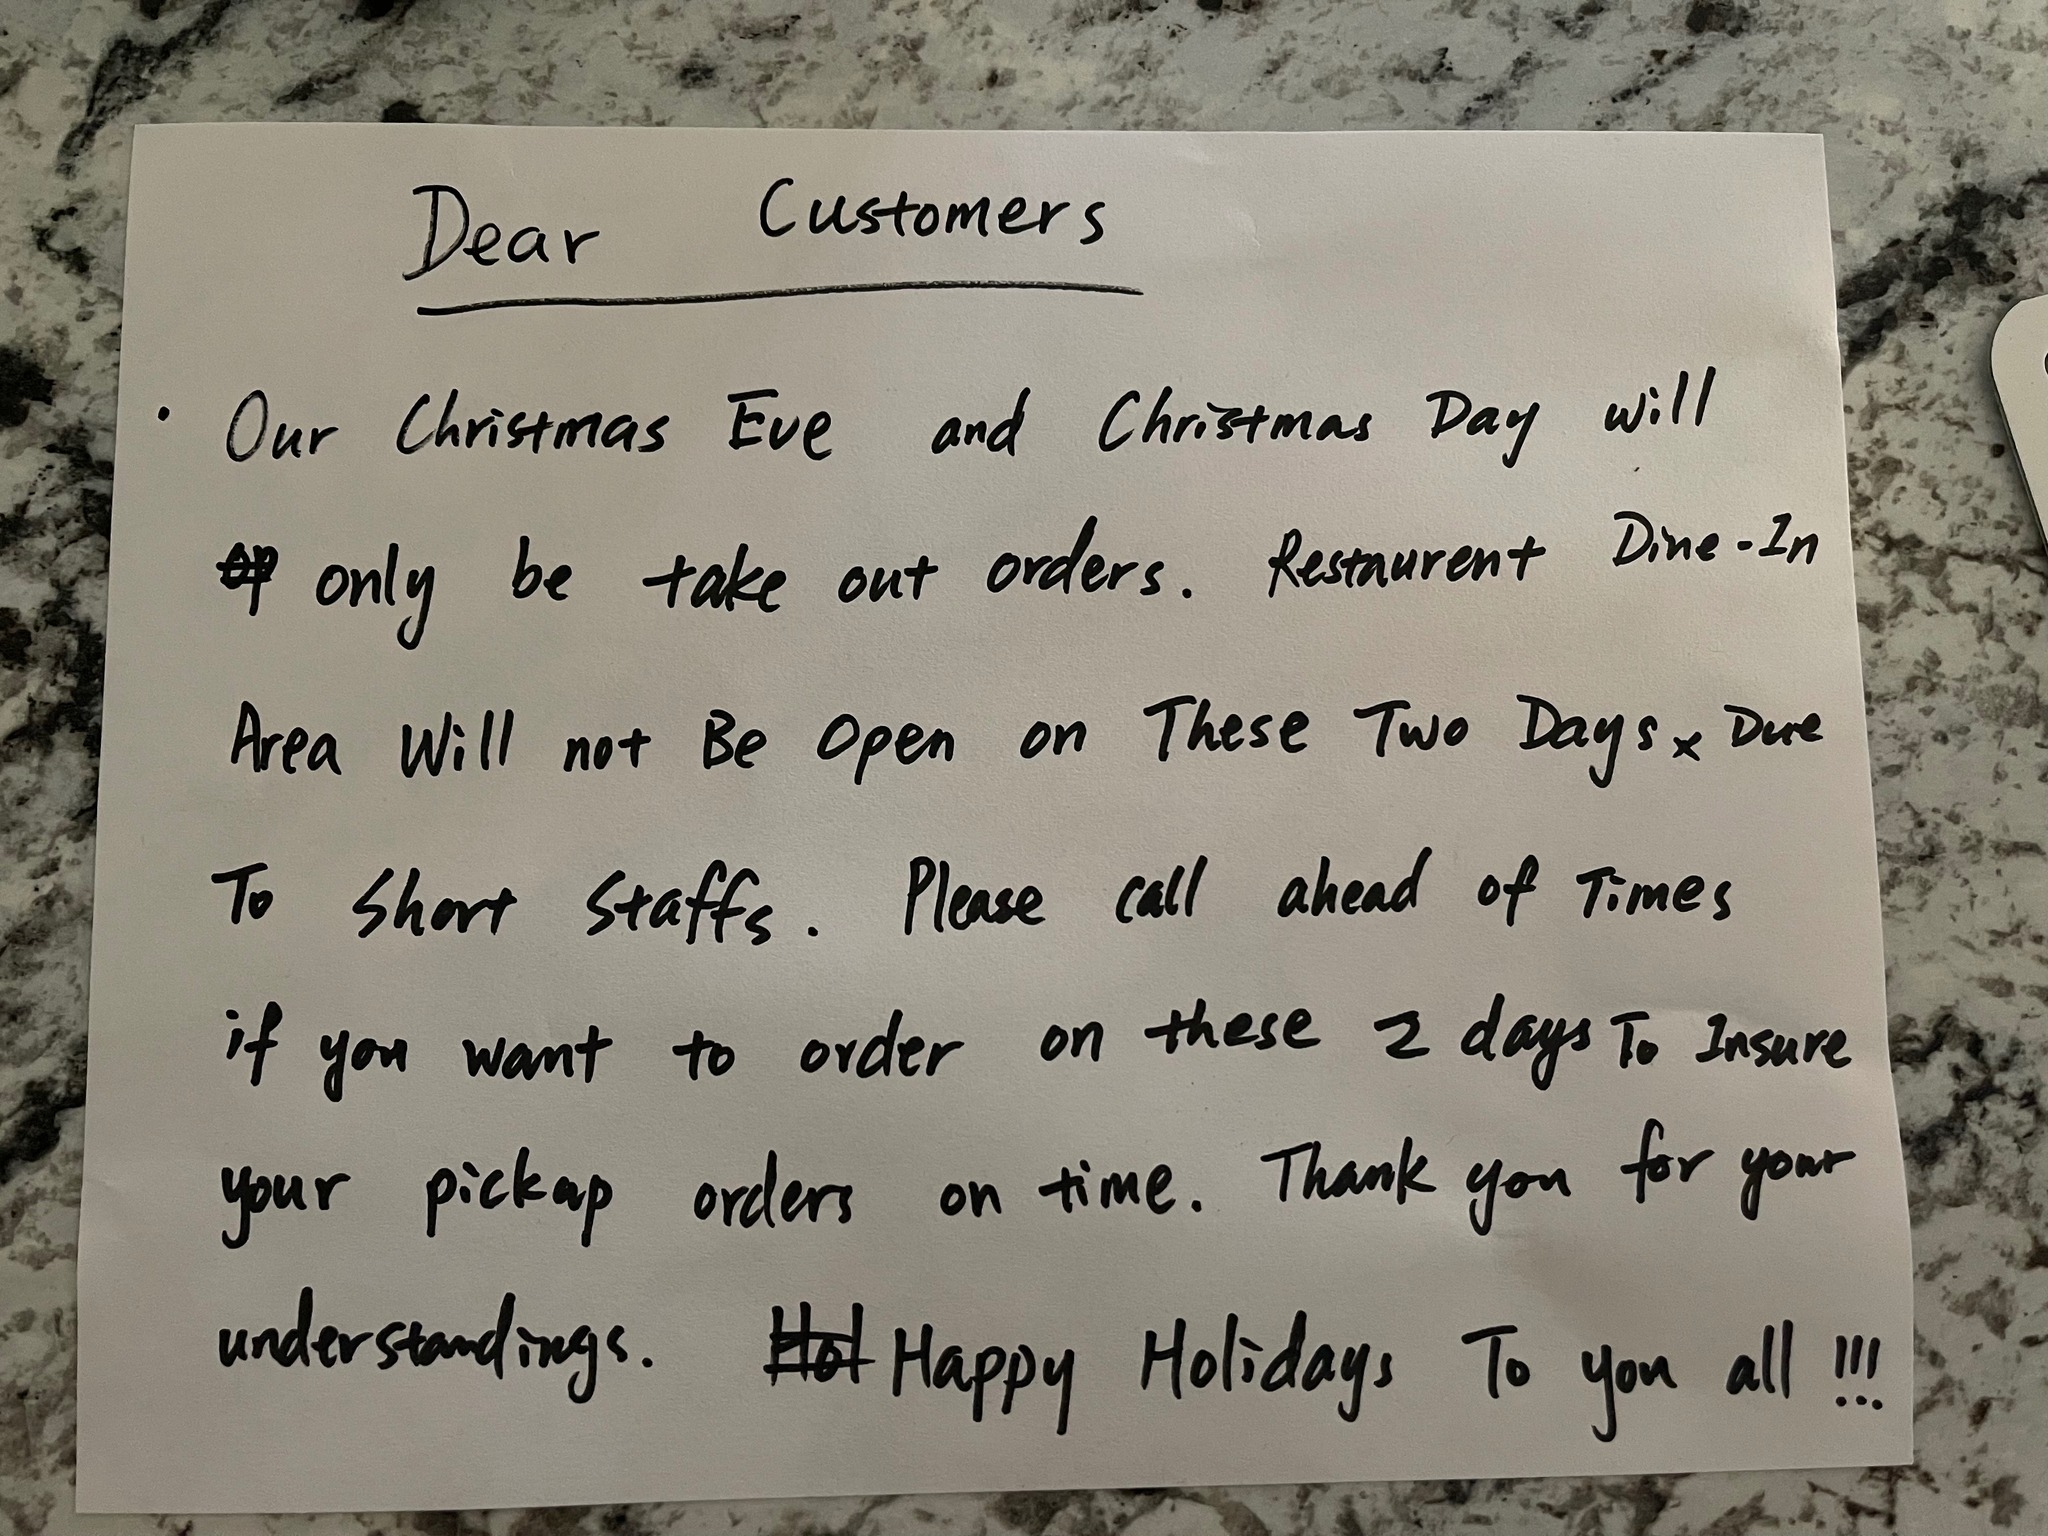 Dear Customers
· Our Christmas Eve and Christmas Day will
only be take out orders. Restaurent Dine-In
Area Will not Be Open on These Two Days x Due
To Short Staffs. Please call ahead of Times
if you want to order on these 2 days To Insure
your pickup orders on time. Thank you for your
understandings. Hol Happy Holidays To you all !!!